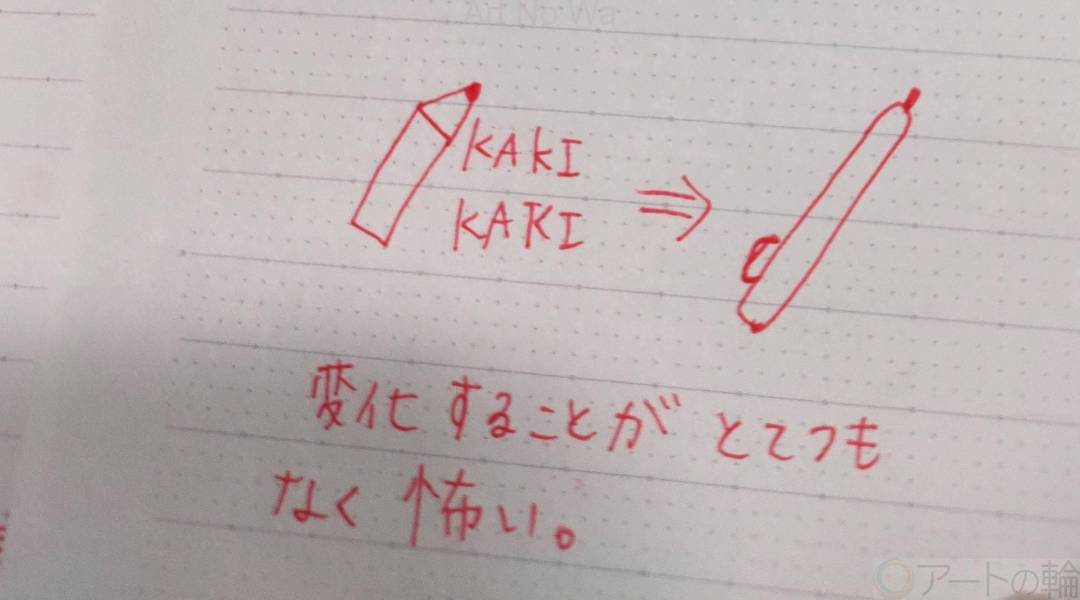 Art No Wa
KAKI
KAKI
変化することがとてつも
なく怖い。
アートの輪